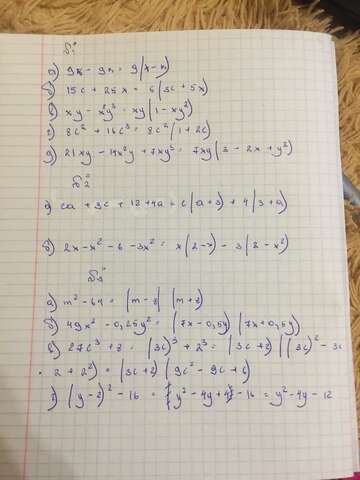 №1
а) 9x - 9n = 9(x-n)
б) 15c + 25x = 5(3c + 5x)
в) xy - x²y³ = xy(1 - xy²)
г) 8c² + 16c³ = 8c²(1 + 2c)
д) 21xy - 14x²y + 7xy³ = 7xy(3 - 2x + y²)
№2
а) ca + 3c + 12 + 4a = c(a+3) + 4(3+a)
б) 2x - x² - 6 - 3x² = x(2-x) - 3(2-x²)
№3
а) m² - 64 = (m-8)(m+8)
б) 49x² - 0,25y² = (7x - 0,5y)(7x + 0,5y)
в) 27c³ + 8 = (3c)³ + 2³ = (3c+2)((3c)² - 3c
· 2 + 2²) = (3c+2)(9c² - 9c + 6)
г) (y-2)² - 16 = (y² - 4y + 4) - 16 = y² - 4y - 12